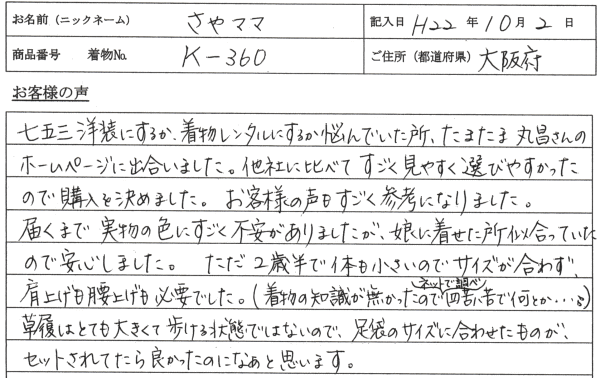 お名前(ニックネーム) さやママ 記入日 H22 年 10 月 2 日
商品番号 着物No. K-360 ご住所(都道府県) 大阪府
お客様の声
七五三洋装にするか、着物レンタルにするか悩んでいた所、たまたま丸昌さんの
ホームページに出合いました。他社に比べてすごく見やすく選びやすかった
ので購入を決めました。お客様の声もすごく参考になりました。
届くまで実物の色にすごく不安がありましたが、娘に着せた所似合っていた
ので安心しました。 ただ2歳半で体も小さいのでサイズが合わず、
肩上げも腰上げも必要でした。(着物の知識が無かったのでネットで調べ四苦八苦で何とか…。)
草履はとても大きくて歩ける状態ではないので、足袋のサイズに合わせたものが、
セットされてたら良かったのになあと思います。